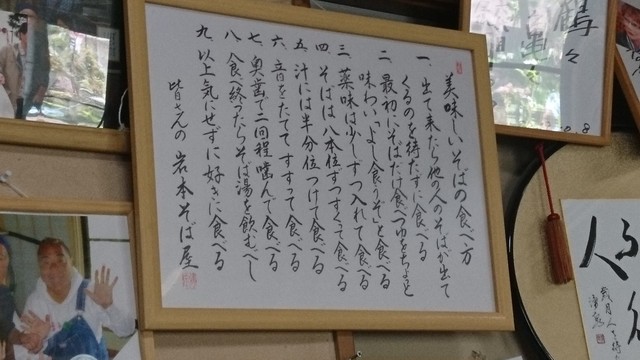 美味しいそばの食べ方
一、出て来たら他の人のそばが出て
くるのを待たずに食べる
二、最初にそばだけ食べつゆをちょっと
味わい、よし食うぞ、と食べる
三、薬味は少しずつ入れて食べる
四 そばは八本位ずつすくって食べる
五 汁には半分位つけて食べる
六、音をたてて すすって食べる
七、奥歯で二回程噛んで食べる
八、食べ終ったらそば湯を飲むべし
九、以上気にせずに好きに食べる
皆さんの 岩本そば屋
鶴々